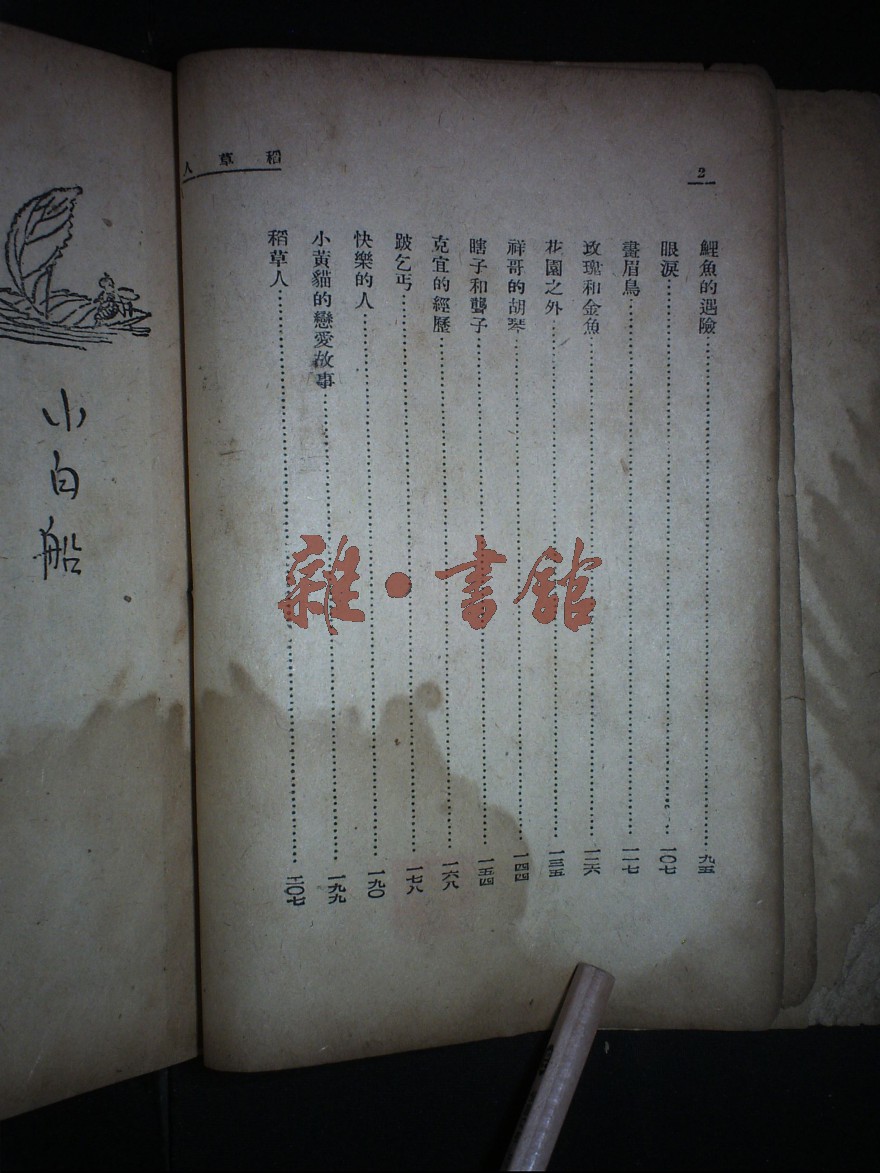 稻草人
2
鯉魚的遇險……九五
眼淚……一〇七
畫眉鳥……一一七
玫瑰和金魚……一二六
花園之外……一三五
祥哥的胡琴……一四四
瞎子和聾子……一五四
克宜的經歷……一六八
跛乞丐……一七八
快樂的人……一九〇
小黃貓的戀愛故事……一九九
稻草人……二〇七
小白船
雜·書館